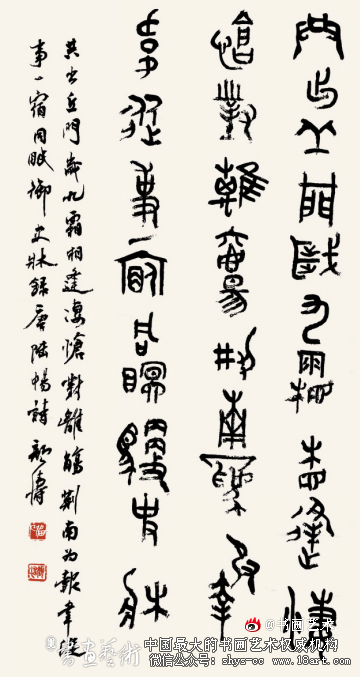 共出丘門歲九霜相逢淒
愴對離觴荊南為報
韋從事一宿同眠御史牀
共出丘門歲九霜相逢淒愴對離觴荊南為報韋從
事一宿同眠御史牀錄唐陸暢詩
@书画艺术
书画艺術
中国最大的书画艺术权威机构
微信公众号: shys-cc www.18art.com